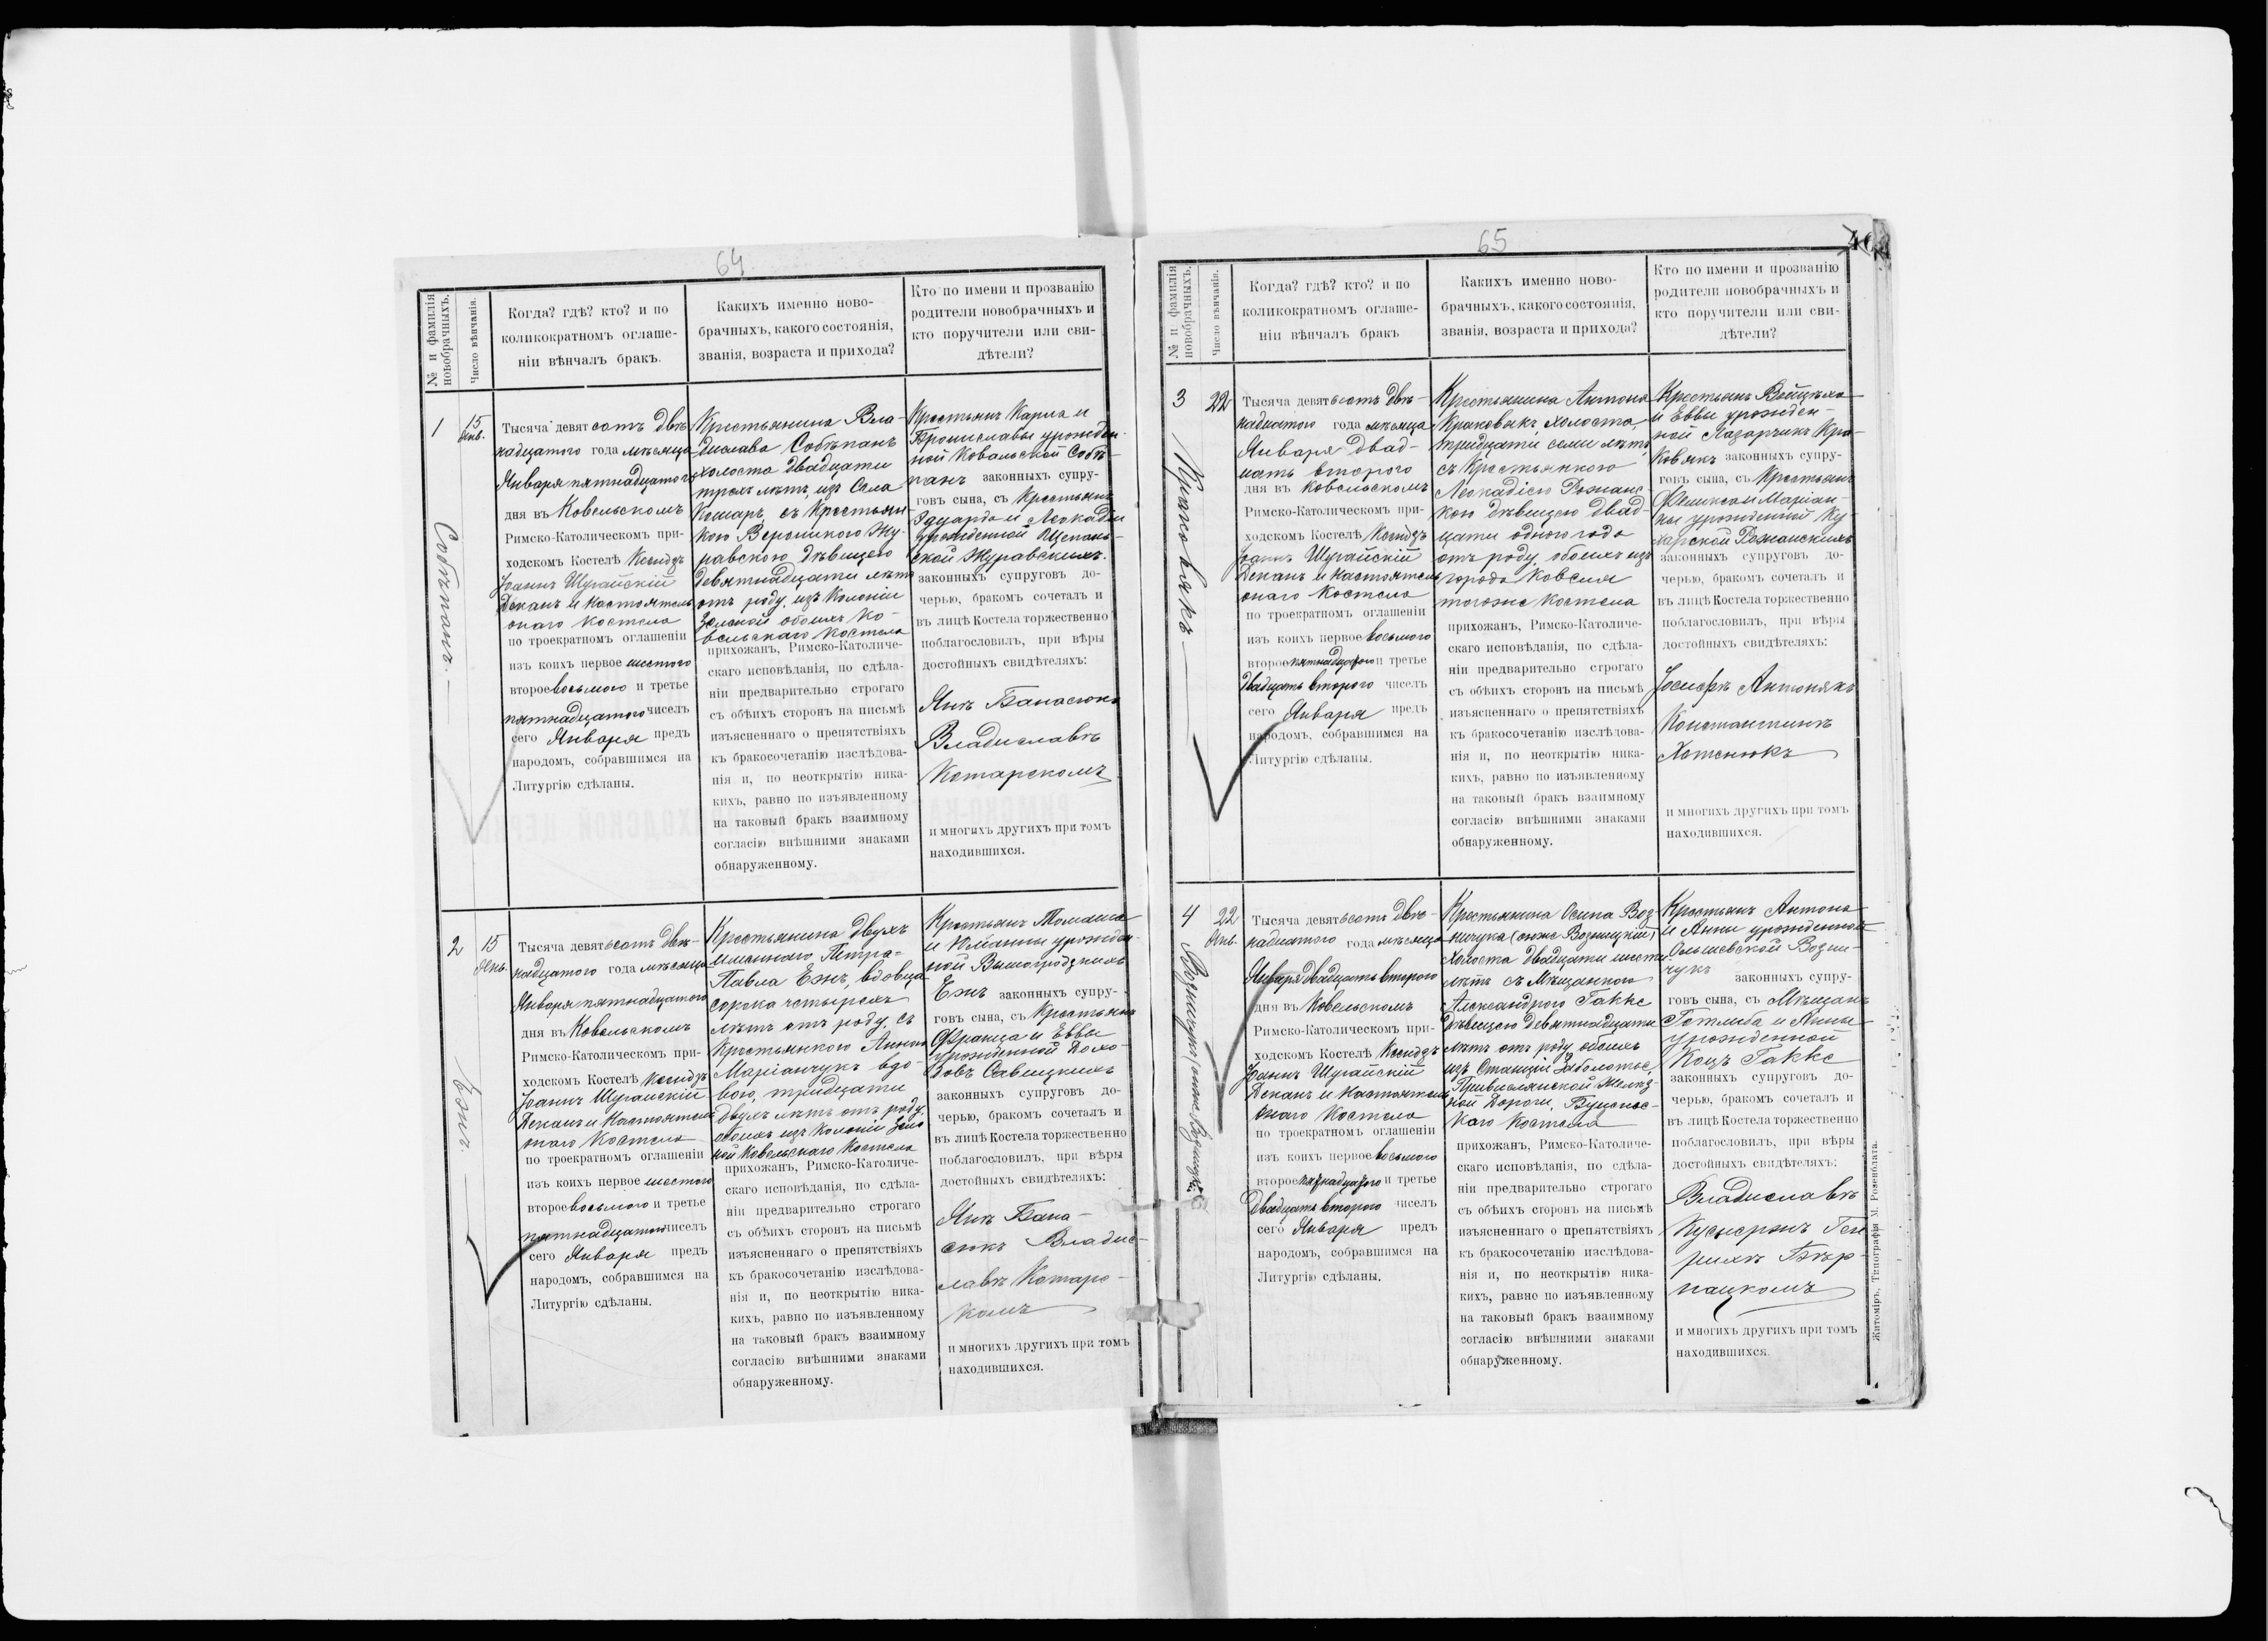 64
№ и фамилія новобрачныхъ.
Число вѣнчанія.
Когда? гдѣ? кто? и по
коликократномъ оглаше-
ніи вѣнчалъ бракъ.
Какихъ именно ново-
брачныхъ, какого состоянія,
званія, возраста и прихода?
Кто по имени и прозванію
родители новобрачныхъ и
кто поручители или сви-
дѣтели?
1
15
Янв.
Собѣпанъ.
Тысяча девятсотъ двѣ
надцатого года мѣсяца
Января пятнадцатого
дня въ Ковельскомъ
Римско-Католическомъ при-
ходскомъ Костелѣ Ксендзъ
Іоаннъ Шугайскій
Деканъ и Настоятель
онаго Костела
по троекратномъ оглашеніи
изъ коихъ первое шестого
второе восьмого и третье
пятнадцатого чиселъ
сего Января предъ
народомъ, собравшимся на
Литургію сдѣланы.
Крестьянина Вла-
дислава Собѣпанъ
холоста двадцати
трехъ лѣтъ, изъ Села
Комаръ, съ Крестьян-
кою Вероникою Жу-
равскою дѣвицею
девятнадцати лѣтъ
отъ роду, изъ Колоніи
Зеленой обоихъ Ко-
вельскаго Костела
прихожанъ, Римско-Католиче-
скаго исповѣданія, по сдѣла-
ніи предварительно строгаго
съ обѣихъ сторонъ на письмѣ
изъясненнаго о препятствіяхъ
къ бракосочетанію изслѣдова-
нія и, по неоткрытію ника-
кихъ, равно по изъявленному
на таковый бракъ взаимному
согласію внѣшними знаками
обнаруженному.
Крестьянъ Карла и
Брониславы урожден-
ной Ковальской Собѣ-
панъ законныхъ супру-
говъ сына, съ Крестьянъ
Эдуарда и Леокадіи
урожденной Щепань-
ской Журавскихъ
законныхъ супруговъ до-
черью, бракомъ сочеталъ и
въ лицѣ Костела торжественно
поблагословилъ, при вѣры
достойныхъ свидѣтеляхъ:
Янъ Банасюкъ
Владиславъ
Котарскомъ
и многихъ другихъ при томъ
находившихся.
2
15
Янв.
Ежъ.
Тысяча девятьсотъ двѣ-
надцатого года мѣсяца
Января пятнадцатого
дня въ Ковельскомъ
Римско-Католическомъ при-
ходскомъ Костелѣ Ксендзъ
Іоаннъ Шугайскій
Деканъ и Настоятель
онаго Костела
по троекратномъ оглашеніи
изъ коихъ первое шестого
второе восьмого и третье
пятнадцатого чиселъ
сего Января предъ
народомъ, собравшимся на
Литургію сдѣланы.
Крестьянина двухъ
именнаго Петра-
Павла Ежъ, вдовца
сорока четырехъ
лѣтъ отъ роду, съ
Крестьянкою Анною
Маріанчукъ вдо-
вою, тридцати
двухъ лѣтъ отъ роду,
обоихъ изъ Колоніи Зеле
ной Ковельскаго Костела
прихожанъ, Римско-Католиче-
скаго исповѣданія, по сдѣла-
ніи предварительно строгаго
съ обѣихъ сторонъ на письмѣ
изъясненнаго о препятствіяхъ
къ бракосочетанію изслѣдова-
нія и, по неоткрытію ника-
кихъ, равно по изъявленному
на таковый бракъ взаимному
согласію внѣшними знаками
обнаруженному.
Крестьянъ Томаша
и Юліанны урожден-
ной Вышогродзкихъ
Ежъ законныхъ супру-
говъ сына, съ Крестьянъ
Франца и Еввы
урожденной
Савицкихъ
законныхъ супруговъ до-
черью, бракомъ сочеталъ и
въ лицѣ Костела торжественно
поблагословилъ, при вѣры
достойныхъ свидѣтеляхъ:
Янъ Бана-
сюкъ Владис-
лавъ Котарс-
комъ
и многихъ другихъ при томъ
находившихся.
65
№ и фамилія новобрачныхъ.
Число вѣнчанія.
Когда? гдѣ? кто? и по
коликократномъ оглаше-
ніи вѣнчалъ бракъ
Какихъ именно ново-
брачныхъ, какого состоянія,
званія, возраста и прихода?
Кто по имени и прозванію
родители новобрачныхъ и
кто поручители или сви-
дѣтели?
3
22
Краковякъ
Тысяча девятьсотъ двѣ-
надцатого года мѣсяца
Января двад-
цать второго
дня въ Ковельскомъ
Римско-Католическомъ при-
ходскомъ Костелѣ Ксендзъ
Іоаннъ Шугайскій
Деканъ и Настоятель
онаго Костела
по троекратномъ оглашеніи
изъ коихъ первое восьмого
второе пятнадцатого и третье
двадцать второго чиселъ
сего Января предъ
народомъ, собравшимся на
Литургію сдѣланы.
Крестьянина Антона
Краковякъ холоста,
тридцати семи лѣтъ,
съ Крестьянкою
Леокадіею Рожанс-
кою дѣвицею двад-
цати одного года
отъ роду, обоихъ изъ
города Ковеля
тогоже Костела
прихожанъ, Римско-Католиче-
скаго исповѣданія, по сдѣла-
ніи предварительно строгаго
съ обѣихъ сторонъ на письмѣ
изъясненнаго о препятствіяхъ
къ бракосочетанію изслѣдова-
нія и, по неоткрытію ника-
кихъ, равно по изъявленному
на таковый бракъ взаимному
согласію внѣшними знаками
обнаруженному.
Крестьянъ Войцѣха
и Еввы урожден-
ной Лазарчикъ Кра-
ковякъ законныхъ супру-
говъ сына, съ Крестьянъ
Феликса и Маріан-
ны урожденной Ку-
харской Рожанскихъ
законныхъ супруговъ до-
черью, бракомъ сочеталъ и
въ лицѣ Костела торжественно
поблагословилъ, при вѣры
достойныхъ свидѣтеляхъ:
Іосифъ Антонякъ
Константинъ
и многихъ другихъ при томъ
находившихся.
4
22
Янв.
Возничукъ (онже Возницкій)
Тысяча девятьсотъ двѣ-
надцатого года мѣсяца
Января двадцать второго
дня въ Ковельскомъ
Римско-Католическомъ при-
ходскомъ Костелѣ Ксендзъ
Іоаннъ Шугайскій
Деканъ и Настоятель
онаго Костела
по троекратномъ оглашеніи
изъ коихъ первое восьмого
второе пятнадцатого и третье
двадцать второго чиселъ
сего Января предъ
народомъ, собравшимся на
Литургію сдѣланы.
Крестьянина Осипа Воз-
ничука (онже Возницкій)
холоста двадцати шести
лѣтъ съ Мѣщанкою
Александрою Гаккe
дѣвицею девятнадцати
лѣтъ отъ роду, обоихъ
изъ Станціи Заболотье,
Привислянской Желѣз-
ной Дороги,
каго Костела
прихожанъ, Римско-Католиче-
скаго исповѣданія, по сдѣла-
ніи предварительно строгаго
съ обѣихъ сторонъ на письмѣ
изъясненнаго о препятствіяхъ
къ бракосочетанію изслѣдова-
нія и, по неоткрытію ника-
кихъ, равно по изъявленному
на таковый бракъ взаимному
согласію внѣшними знаками
обнаруженному.
Крестьянъ Антона
и Анны урожденной
Ольшевской Возни-
чукъ законныхъ супру-
говъ сына, съ Мѣщанъ
Готлиба и Анны
урожденной
Коцъ Гакке
законныхъ супруговъ до-
черью, бракомъ сочеталъ и
въ лицѣ Костела торжественно
поблагословилъ, при вѣры
достойныхъ свидѣтеляхъ:
Владиславъ
Ген-
рихъ Бѣр-
нацкомъ
и многихъ другихъ при томъ
находившихся.
Житоміръ, Типографія М. Розенблата.